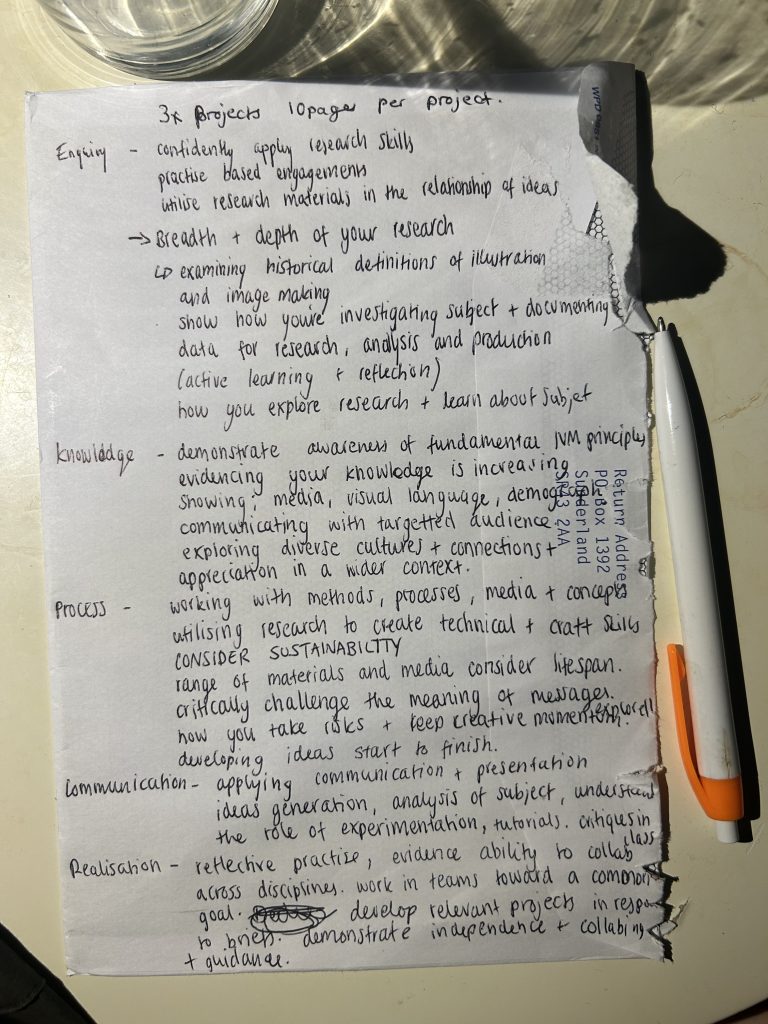 3x projects 10pages per project.
Enquiry - confidently apply research skills
practise based engagements
utilise research materials in the relationship of ideas
→ Breadth + depth of your research
↳ examining historical definitions of illustration
and image making
show how you're investigating subject + documenting
data for research, analysis and production
(active learning + reflection)
how you explore research + learn about subject
Knowledge - demonstrate awareness of fundamental IVM principles
evidencing your knowledge is increasing
showing; media, visual language,
communicating with targetted audience
exploring diverse cultures + connections +
appreciation in a wider context.
Process - working with methods, processes, media + concepts
utilising research to create technical + craft skills
CONSIDER SUSTAINABILITY
range of materials and media consider lifespan.
critically challenge the meaning of messages.
how you take risks + keep creative momentum. explore!!
developing ideas start to finish.
Communication - applying communication + presentation
ideas generation, analysis of subject, understand
the role of experimentation, tutorials. critiques in
class
Realisation - reflective practise, evidence ability to collab
across disciplines. work in teams toward a common
goal. develop relevant projects in respo
to briefs. demonstrate independence + collabing
+ guidance.
Return Address
PO BOX 1392
Sunderland
SR43 2AA